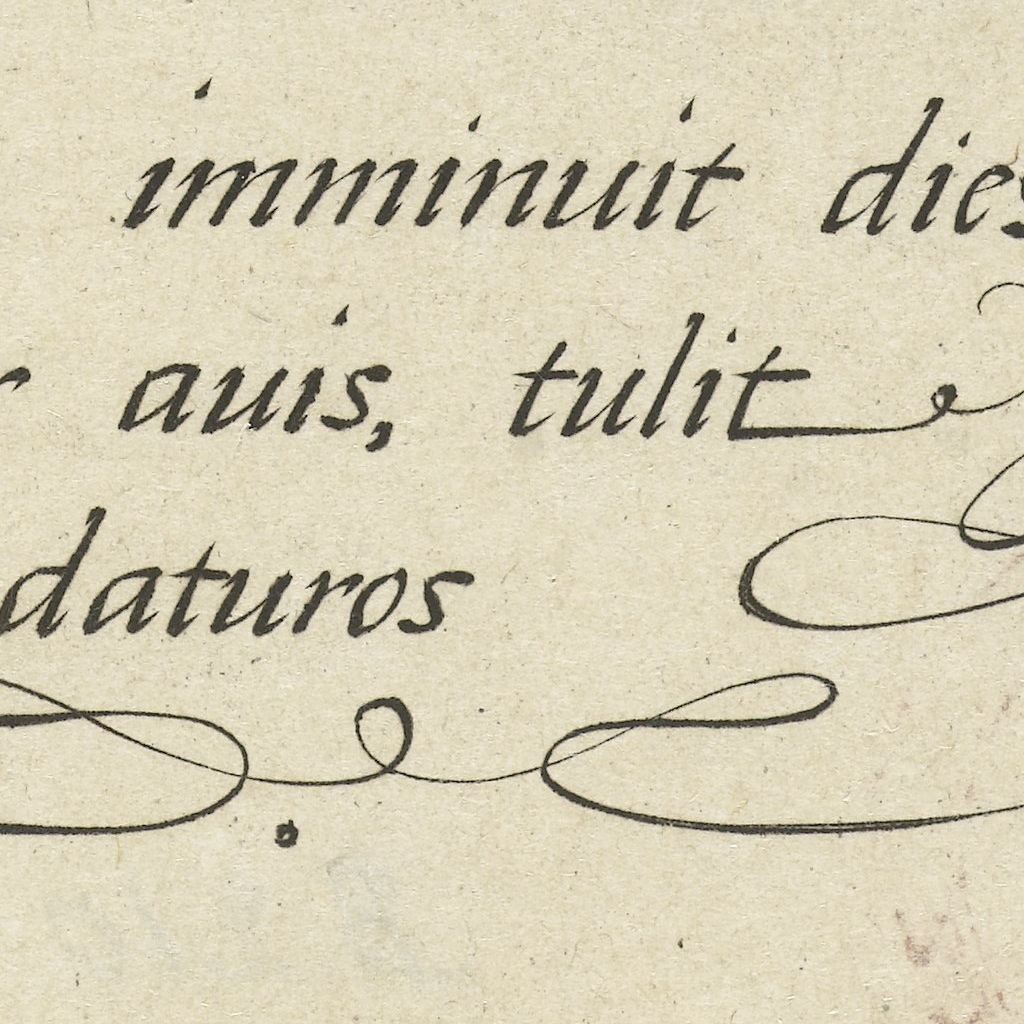 imminuit dies
r auis, tulit
daturos